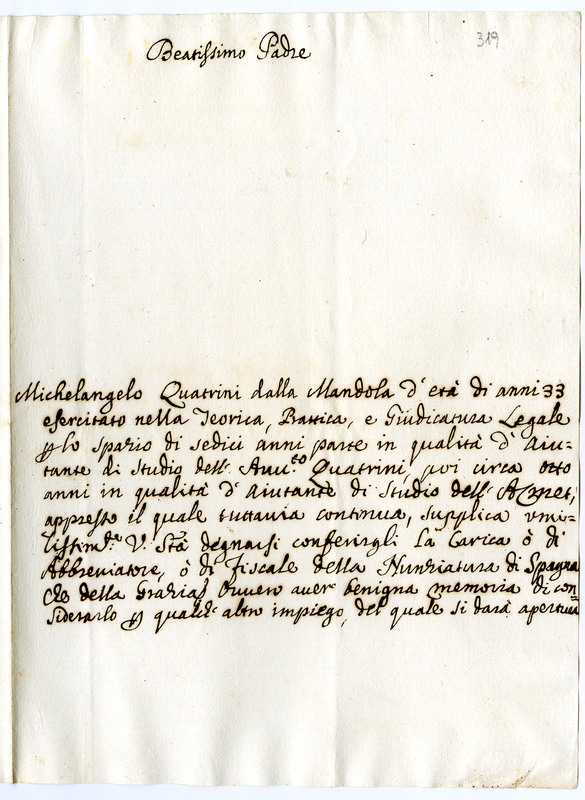 319
Beatissimo Padre
Michelangelo Quatrini dalla Mandola d'età di anni 33
esercitato nella Teorica, Prattica, e Giudicatura Legale
p lo spazio di sedici anni parte in qualità d'Aiu=
tante di Studio dell' Auu.to Quatrini, poi circa otto
anni in qualità d'Aiutante di Studio dell'
appresso il quale tuttauia continua, supplica vmi=
lissim.te V. Stà degnarsi conferirgli la Carica ò di
Abbreviatore, ò di fiscale della Nunziatura di Spagna
Che della Grazia Ouuero auer benigna memoria di con=
siderarlo p qualche altro impiego, del quale si darà apertura